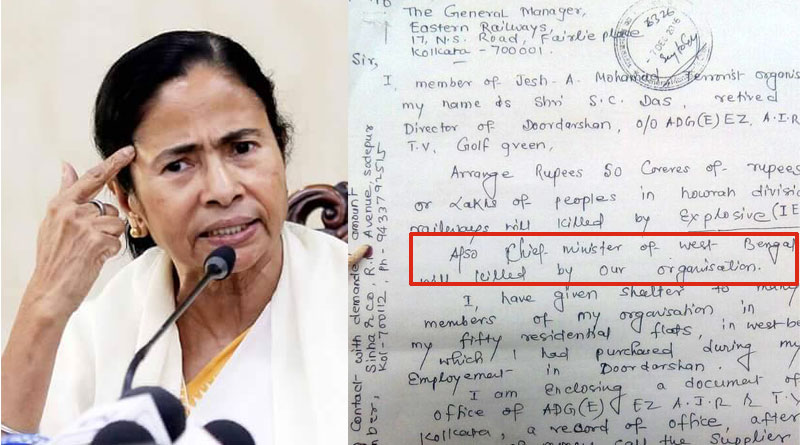 To
The General Manager,
Eastern Railways,
17, N.S. Road, Fairlie place
Kolkata - 700001.
Sir,
I, member of Jesh-A. Mohamad Terrorist organis
my name is Shri S.C. Das, retired
Director of Doordarshan, O/O ADG(E) EZ, A.I.R
T.V. Golf green,
Arrange Rupees 50 Corers of rupees
or Lakhs of peoples in howrah divisio
railways will killed by Explosive (IE
Also Chief minister of west Bengal
will killed by our organisation.
I, have given shelter to many
members of my organisation in
my fifty residential flats, in west-be
which I had purchased during my
Employement in Doordarshan.
I am Enclosing a document of
office of ADG(E) EZ A.I.R & T.V
Kolkata, a record of office, after
call the Supplier
Contact - with demanded amount
Sinha & Co, R. Avenue, Sodepur
Kol-700112, Ph-